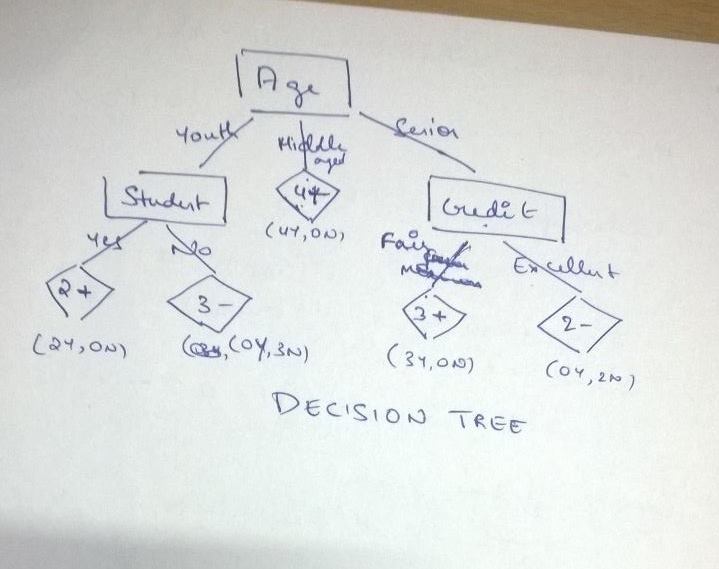 Age
Youth
Middle
aged
Senior
Student
4+
(4Y, 0N)
Credit
Yes
No
Fair
Excellent
2+
3-
3+
2-
(2Y, 0N)
(0Y, 3N)
(3Y, 0N)
(0Y, 2N)
DECISION TREE